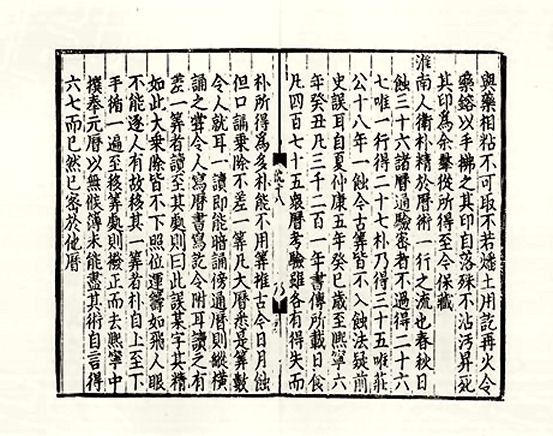 與藥相粘不可取不若燔土用訖再火令
藥鎔以手拂之其印自落殊不沾汚昇死
其印為余羣從所得至今保藏
淮南人衛朴精於曆術一行之流也春秋日
蝕三十六諸曆通驗密者不過得二十六
七唯一行得二十七朴乃得三十五唯莊
公十八年一蝕今古筭皆不入蝕法疑前
史誤耳自夏仲康五年癸巳歲至熙寧六
年癸丑凡三千二百一年書傳所載日食
凡四百七十五衆曆考驗雖各有得失而
十八
朴所得為多朴能不用筭推古今日月蝕
但口誦乗除不差一筭凡大曆悉是筭數
令人就耳一讀即能暗誦傍通曆則縱横
誦之嘗令人寫曆書寫訖令附耳讀之有
差一筭者讀至其處則曰此誤某字其精
如此大乗除皆不下照位運籌如飛人眼
不能逐人有故移其一筭者朴自上至下
手循一遍至移筭處則撥正而去熙寧中
撰奉元曆以無候簿未能盡其術自言得
六七而已然已密於他曆